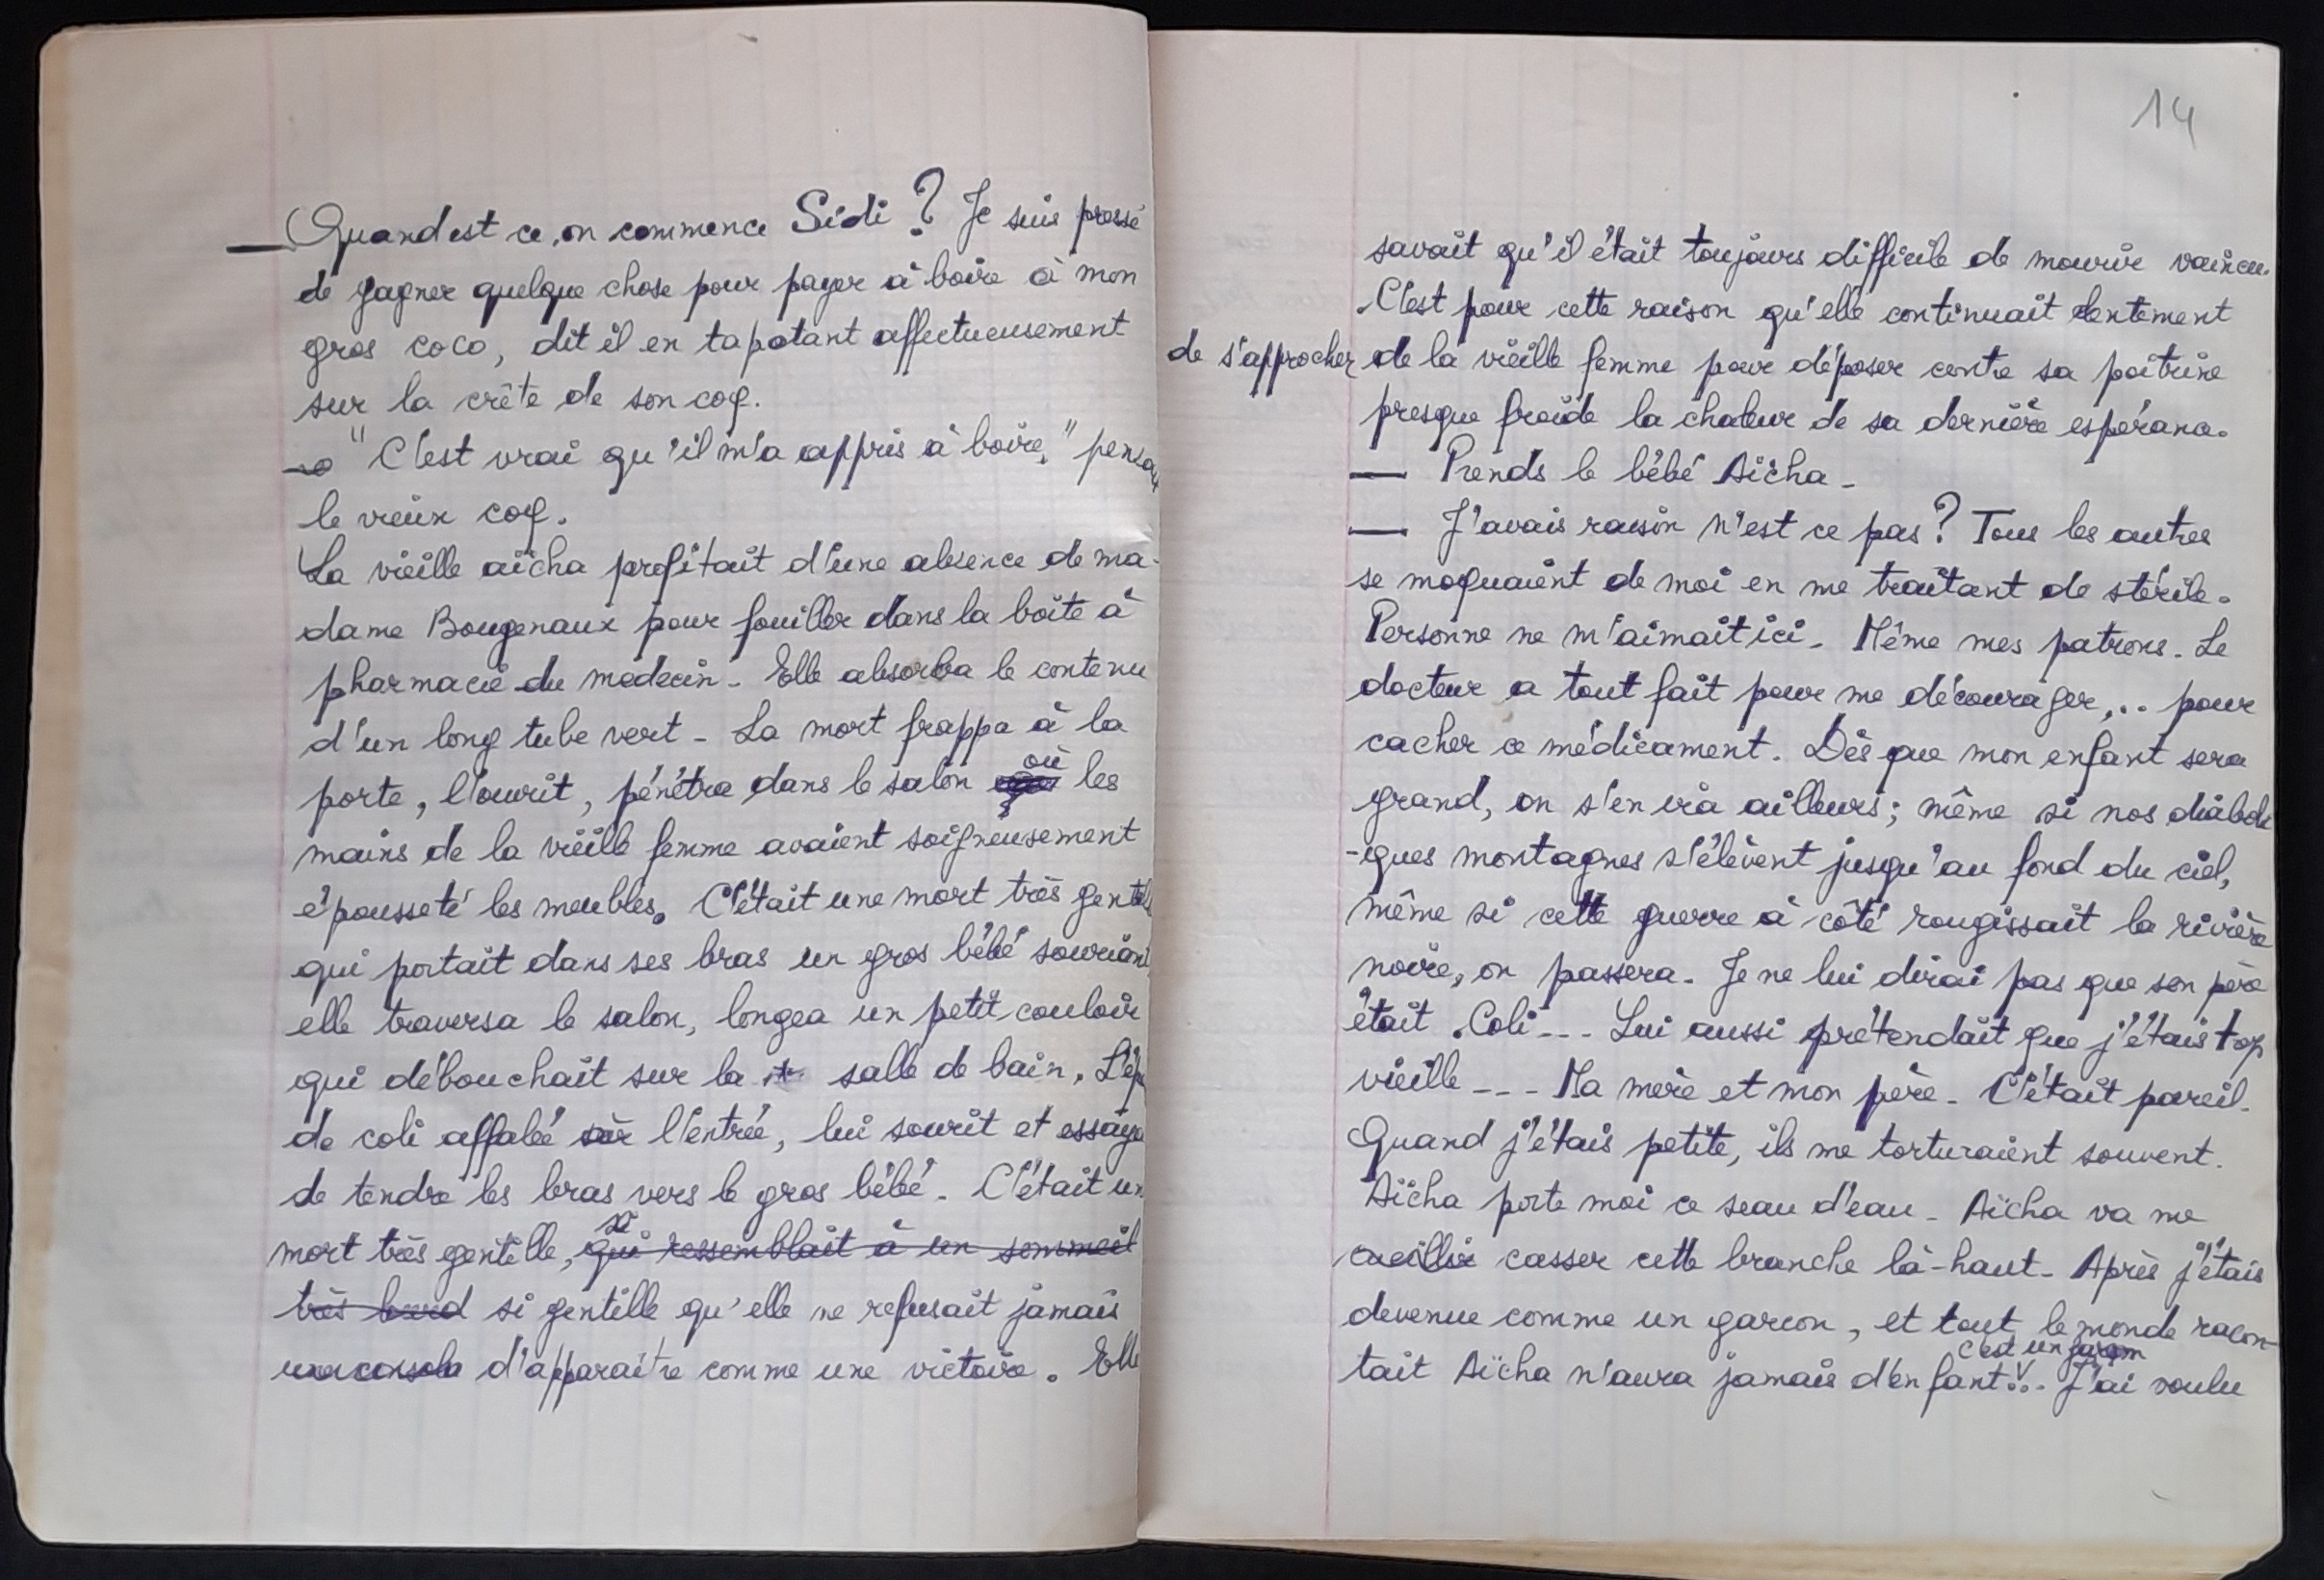 — Quand est ce, on commence Sidi ? Je suis pressé
de gagner quelque chose pour payer à boire à mon
gros coco, dit il en tapotant affectueusement
sur la crête de son coq.
"C'est vrai qu'il m'a appris à boire," pensait
le vieux coq.
La vieille aïcha profitait d'une absence de ma-
dame Bougenaux pour fouiller dans la boite à
pharmacie du médecin - Elle absorba le contenu
d'un long tube vert - La mort frappa à la
porte, l'ouvrit, pénétra dans le salon où les
mains de la vieille femme avaient soigneusement
épousseté les meubles. C'était une mort très gentille
qui portait dans ses bras un gros bébé souriant
elle traversa le salon, longea un petit couloir
qui débouchait sur la salle de bain.
de coli affalée sur l'entrée, lui sourit et essaya
de tendre les bras vers le gros bébé - C'était un
mort très gentille, qui ressemblait à un sommeil
très lourd si gentille qu'elle ne refusait jamais
d'apparaitre comme une victoire. Elle
14
savait qu'il était toujours difficile de mourir vaincu.
C'est pour cette raison qu'elle continuait lentement
de s'approcher de la vieille femme pour déposer contre sa poitrine
presque froide la chaleur de sa dernière espérance.
— Prends le bébé Aïcha -
— J'avais raison n'est ce pas ? Tous les autres
se moquaient de moi en me traitant de stérile.
Personne ne m'aimait ici - Même mes patrons - Le
docteur a tout fait pour me décourager,... pour
cacher ce médicament. Dès que mon enfant sera
grand, on s'en ira ailleurs ; même si nos diaboli
-ques montagnes s'élèvent jusqu'au fond du ciel,
même si cette guerre à côté rougissait la rivière
noire, on passera - Je ne lui dirai pas que son père
était Coli --- Lui aussi prétendait que j'étais trop
vieille --- Ma mère et mon père - C'était pareil.
Quand j'étais petite, ils me torturaient souvent.
Aïcha porte moi ce seau d'eau - Aïcha va me
cueillir casser cette branche là-haut - Après j'étais
devenue comme un garcon, et tout le monde racon-
c'est un garcon
tait Aïcha n'aura jamais d'enfant... J'ai voulu